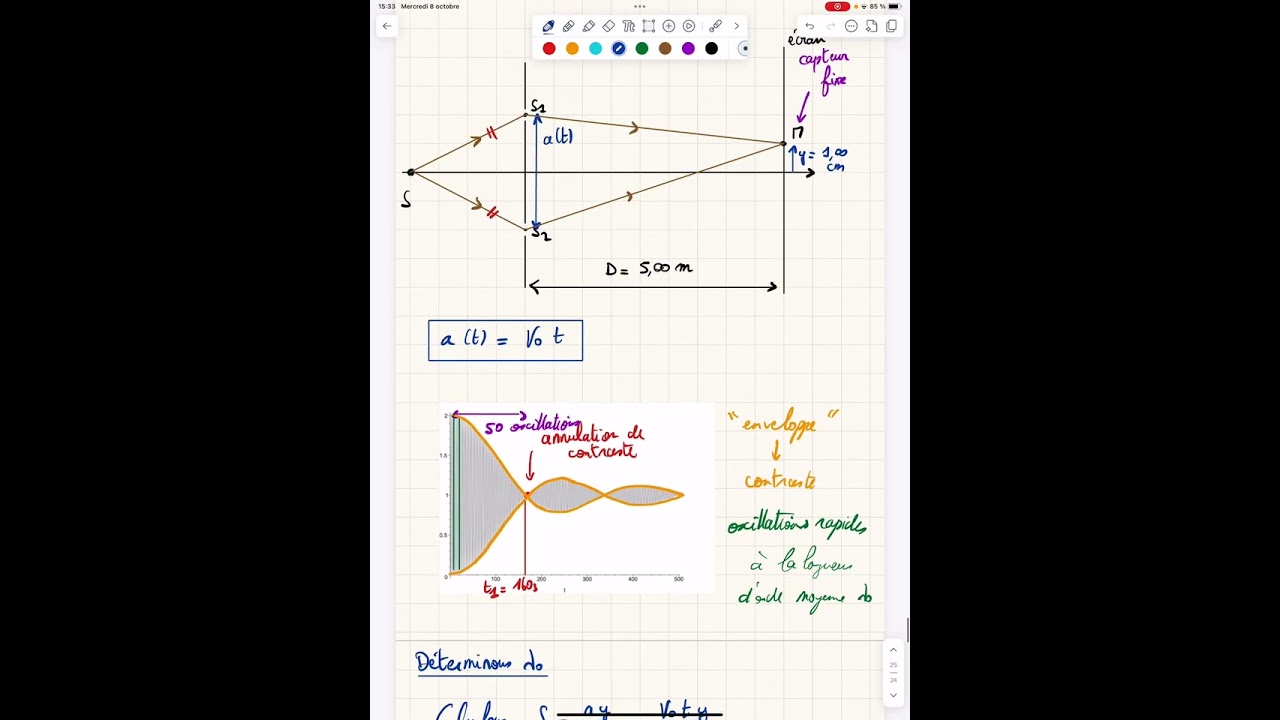 15:33 Mercredi 8 octobre
85 %
écran
capteur
fixe
S1
a(t)
M
y = 1,00
cm
S
S2
D = 5,00 m
a (t) = V0 t
2
1.5
1
0.5
0
100
200
300
400
500
t
50 oscillations
annulation de
contraste
t1 = 160s
"enveloppe"
contraste
oscillations rapides
à la longueur
d'onde moyenne λ0
Déterminons λ0
25
24